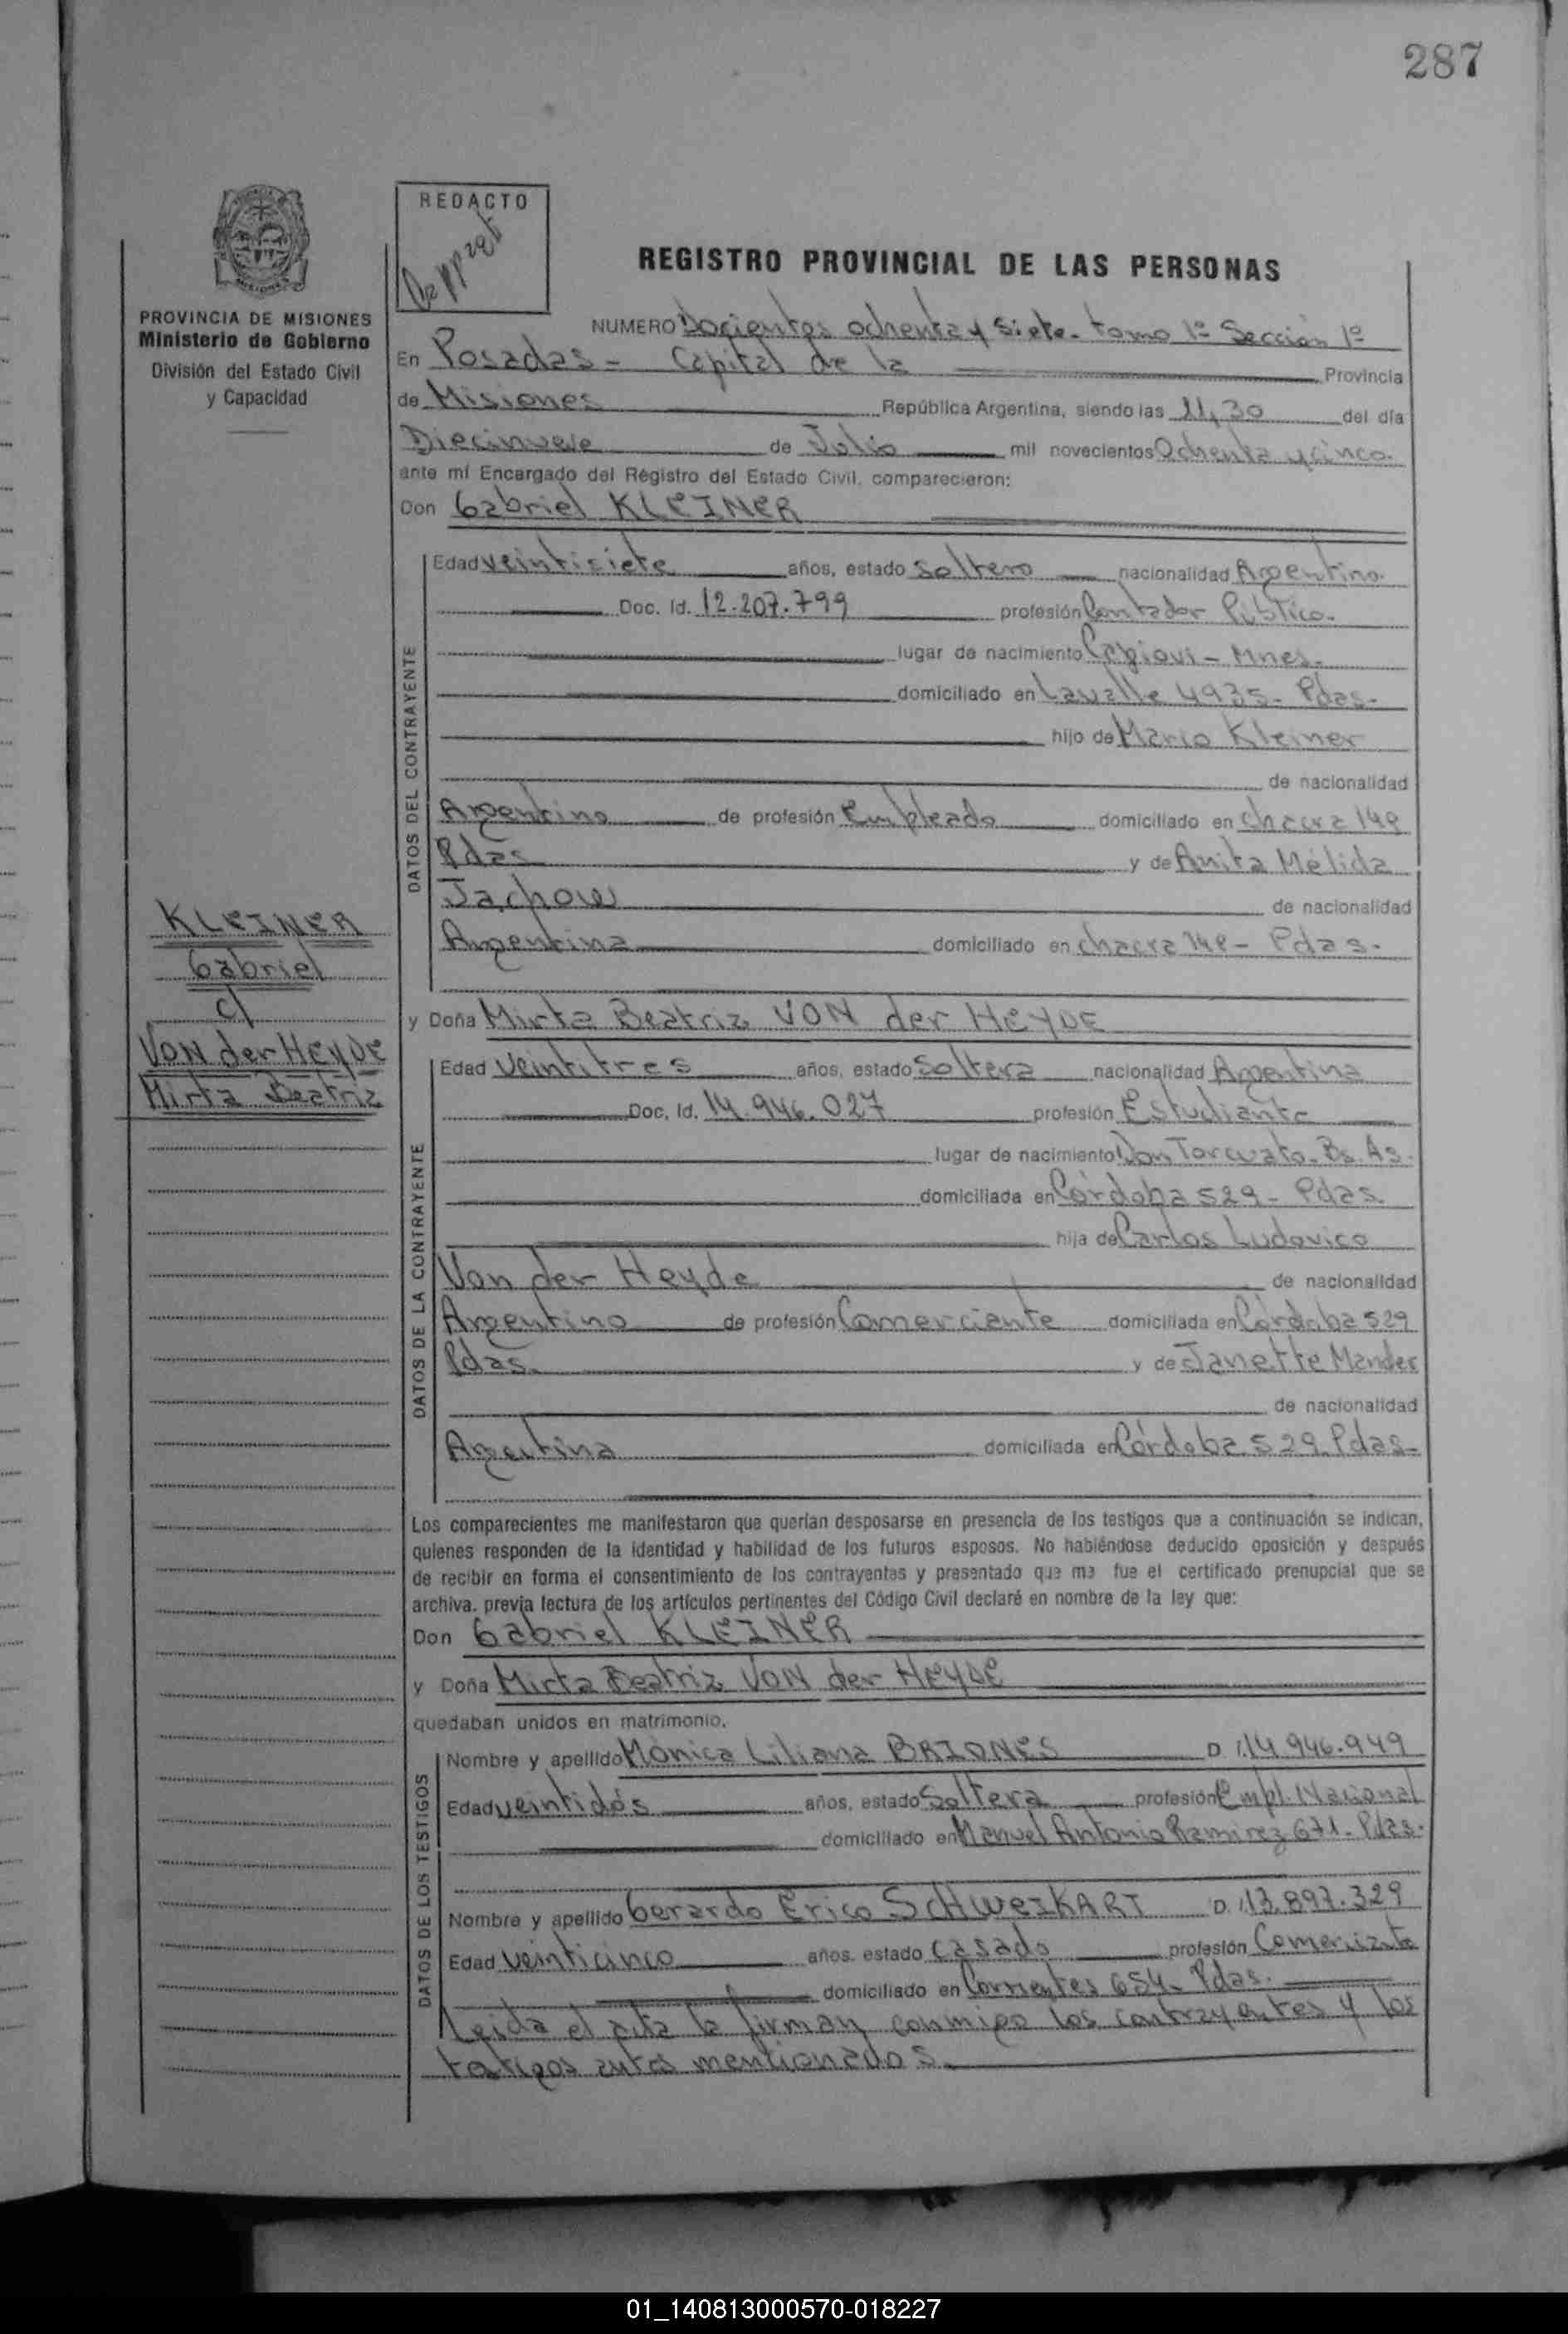 287
REDACTO
REGISTRO PROVINCIAL DE LAS PERSONAS
PROVINCIA DE MISIONES
Ministerio de Gobierno
División del Estado Civil
y Capacidad
NUMERO Docientos ochenta y siete - tomo 1º Sección 1º
En Posadas - Capital de la Provincia
de Misiones República Argentina, siendo las 11,30 del día
Diecinueve de Julio mil novecientos Ochenta y cinco.
ante mí Encargado del Registro del Estado Civil, comparecieron:
Don Gabriel KLEINER
DATOS DEL CONTRAYENTE
Edad veintisiete años, estado soltero nacionalidad Argentino.
Doc. Id. 12.207.799 profesión Contador Público.
lugar de nacimiento Capiovi - Mnes.
domiciliado en Lavalle 4935 - Pdas-
hijo de Mario Kleiner
de nacionalidad
Argentino de profesión Empleado domiciliado en chacra 149
Pdas y de Anita Mélida
Jachow de nacionalidad
Argentina domiciliado en chacra 149 - Pdas-
KLEINER
Gabriel
c/
VON der HEYDE
Mirta Beatriz
y Doña Mirta Beatriz VON der HEYDE
DATOS DE LA CONTRAYENTE
Edad veintitres años, estado soltera nacionalidad Argentina
Doc. Id. 14.946.027 profesión Estudiante
lugar de nacimiento Don Torcuato - Bs. As.
domiciliada en Córdoba 529 - Pdas.
hija de Carlos Ludovico
Von der Heyde de nacionalidad
Argentino de profesión Comerciante domiciliada en Córdoba 529
Pdas. y de Janette Mander
de nacionalidad
Argentina domiciliada en Córdoba 529 Pdas-
Los comparecientes me manifestaron que querían desposarse en presencia de los testigos que a continuación se indican,
quienes responden de la identidad y habilidad de los futuros esposos. No habiéndose deducido oposición y después
de recibir en forma el consentimiento de los contrayentes y presentado que me fue el certificado prenupcial que se
archiva. previa lectura de los artículos pertinentes del Código Civil declaré en nombre de la ley que:
Don Gabriel KLEINER
y Doña Mirta Beatriz VON der HEYDE
quedaban unidos en matrimonio.
DATOS DE LOS TESTIGOS
Nombre y apellido Mónica Liliana BRIONES D.I. 14.946.949
Edad veintidós años, estado Soltera profesión Empl. Nacional
domiciliado en Manuel Antonio Ramirez 671 - Pdas.
Nombre y apellido Gerardo Erico SCHWEIKART D.I. 13.897.329
Edad veinticinco años. estado casado profesión Comerciante
domiciliado en Corrientes 654 - Pdas.
Leida el acta la firman conmigo los contrayentes y los
testigos antes mencionados.
01_140813000570-018227